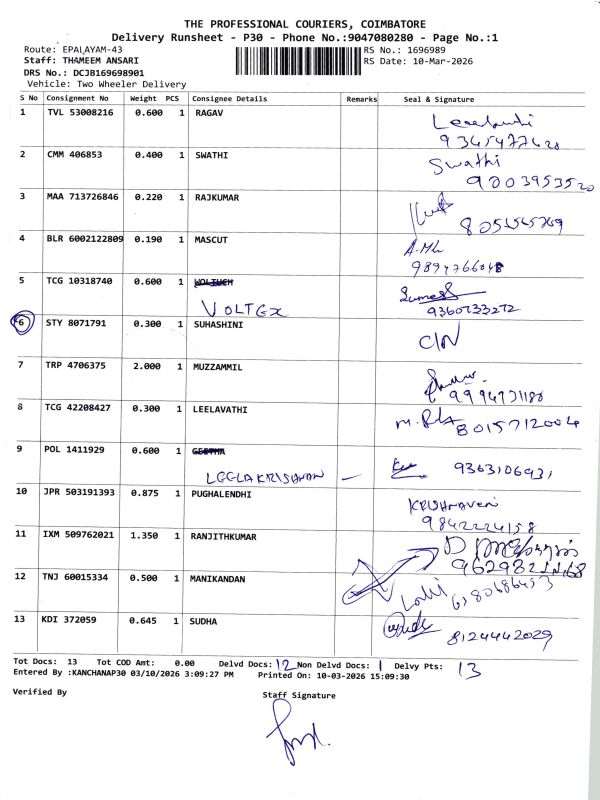 THE PROFESSIONAL COURIERS, COIMBATORE
Delivery Runsheet - P30 - Phone No.:9047080280 - Page No.:1
Route: EPALAYAM-43 RS No.: 1696989
Staff: THAMEEM ANSARI RS Date: 10-Mar-2026
DRS No.: DCJB169698901
Vehicle: Two Wheeler Delivery
S No Consignment No Weight PCS Consignee Details Remarks Seal & Signature
1 TVL 53008216 0.600 1 RAGAV
2 CMM 406853 0.400 1 SWATHI Swathi
9003953520
3 MAA 713726846 0.220 1 RAJKUMAR
4 BLR 6002122809 0.190 1 MASCUT
9894766048
5 TCG 10318740 0.600 1
VOLTEX 9360733272
6 STY 8071791 0.300 1 SUHASINI
C/N
7 TRP 4706375 2.000 1 MUZZAMMIL
8 TCG 42208427 0.300 1 LEELAVATHI
8015712004
9 POL 1411929 0.600 1 GEETHA
LEELAKRISHNAN 9363106931
10 JPR 503191393 0.875 1 PUGHALENDHI
KRISHNAVENI
9842224158
11 IXM 509762021 1.350 1 RANJITHKUMAR
12 TNJ 60015334 0.500 1 MANIKANDAN
6380686453
13 KDI 372059 0.645 1 SUDHA
8124442029
Tot Docs: 13 Tot COD Amt: 0.00 Delvd Docs: 12 Non Delvd Docs: 1 Delvy Pts: 13
Entered By :KANCHANAP30 03/10/2026 3:09:27 PM Printed On: 10-03-2026 15:09:30
Verified By Staff Signature